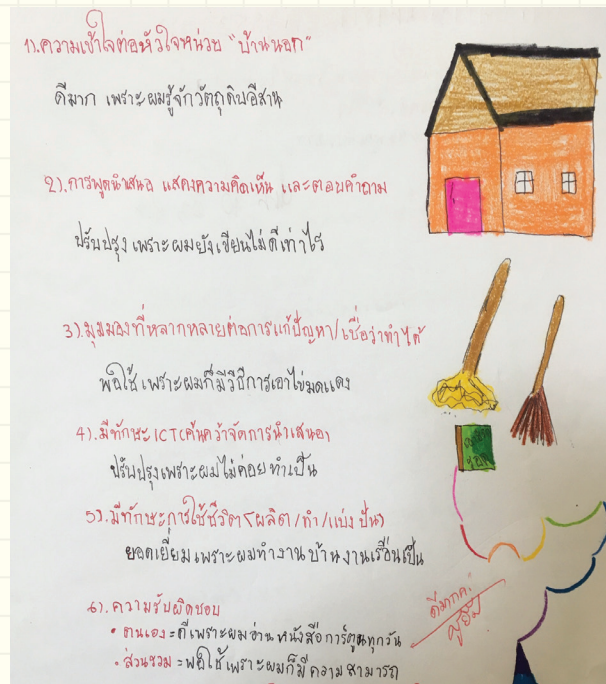 1).ความเข้าใจต่อหัวใจหน่วย "บ้านนอก"
ดีมาก เพราะผมรู้จักวัตถุดิบอีสาน
2).การพูดนำเสนอ แสดงความคิดเห็น และตอบคำถาม
ปรับปรุง เพราะผมยังเขียนไม่ดีเท่าไร
3).มุมมองที่หลากหลายต่อการแก้ปัญหา/เชื่อว่าทำได้
พอใช้ เพราะผมก็มีวิธีการเอาไข่มดแดง
4).มีทักษะ ICT(ค้นคว้าจัดการนำเสนอ)
ปรับปรุงเพราะผมไม่ค่อยทำเป็น
5).มีทักษะการใช้ชีวิต(ผลิต/ทำ/แบ่งปัน)
ยอดเยี่ยม เพราะผมทำงานบ้านงานเรือนเป็น
6).ความรับผิดชอบ
• ตนเอง = ดีเพราะผมอ่านหนังสือการ์ตูนทุกวัน
• ส่วนรวม = พอใช้ เพราะผมก็มีความสามารถ
ดีมากค่ะ